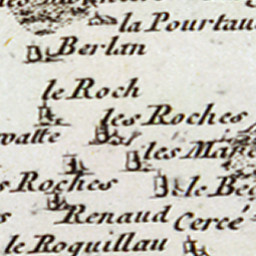 la Pourtau
Berlan
le Roch
les Roches
valte
les Mar
s Roches
le Be
s
Renaud
Cercé
le Roquillau